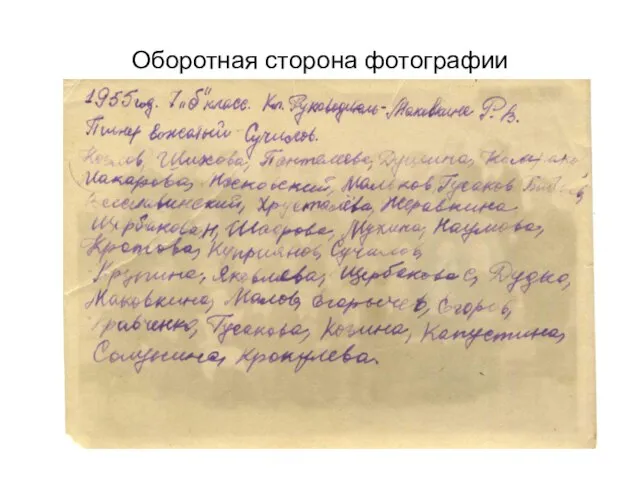 Оборотная сторона фотографии
1955 год. 7 "б" класс. Кл. Руководитель - Маковкина Р. В.
Пионер вожатый - Сучилов.
Козлов, Шихова, Пантелеева, Душкина,
Макарова, Маленков, Гусаков
Веселовинский, Хрусталёва, Журавкина
Щербакова Н, Шаброва, Мухина, Наумова,
Кротова, Куприянов, Сучилов,
Крупина, Яковлева, Щербакова С, Дудко,
Маковкина, Малов, Егоров,
Кравченко, Гусакова, Когина, Капустина,
Крапулева.